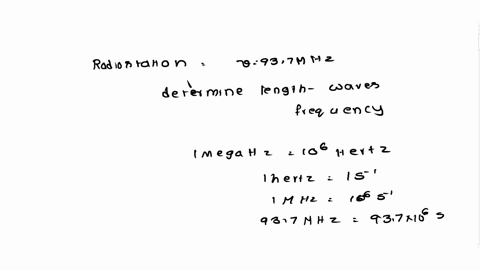 Radiostation = ν=93.7MHz
determine length- waves
frequency
1 Mega Hz = 10⁶ Hertz
1 hertz = 1 S⁻¹
1 MHz = 10⁶ S⁻¹
93.7 MHz = 93.7×10⁶ s